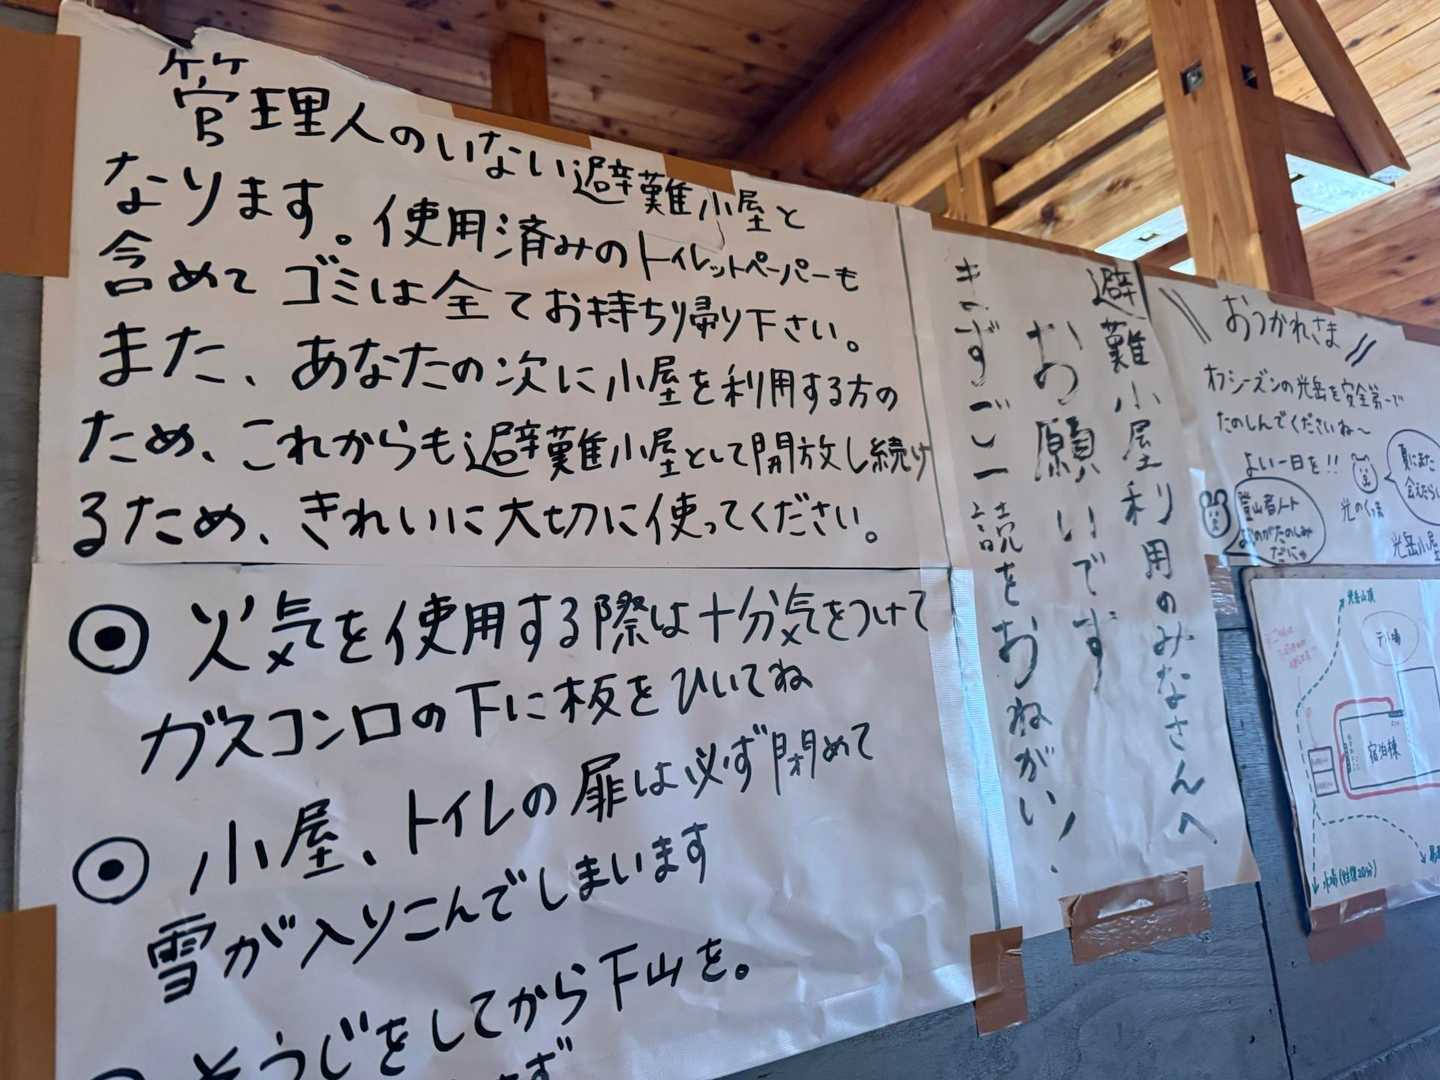 管理人のいない避難小屋と
なります。使用済みのトイレットペーパーも
含めてゴミは全てお持ち帰り下さい。
また、あなたの次に小屋を利用する方の
ため、これからも避難小屋として開放し続け
るため、きれいに大切に使ってください。
◉火気を使用する際は十分気をつけて
ガスコンロの下に板をひいてね
◉小屋、トイレの扉は必ず閉めて
雪が入りこんでしまいます
そうじをしてから下山を。
避難小屋利用のみなさんへ
お願いです
きずご一読をおねがい!
おつかれさま
オフシーズンの光岳を安全第一で
たのしんでくださいね〜
よい一日を!!
光のくま
夏にまた
会えたらい
登山者ノート
よむのがたのしみ
だにゃ
光岳小屋
光岳山頂
テント場
宿泊棟
水場(往復20分)